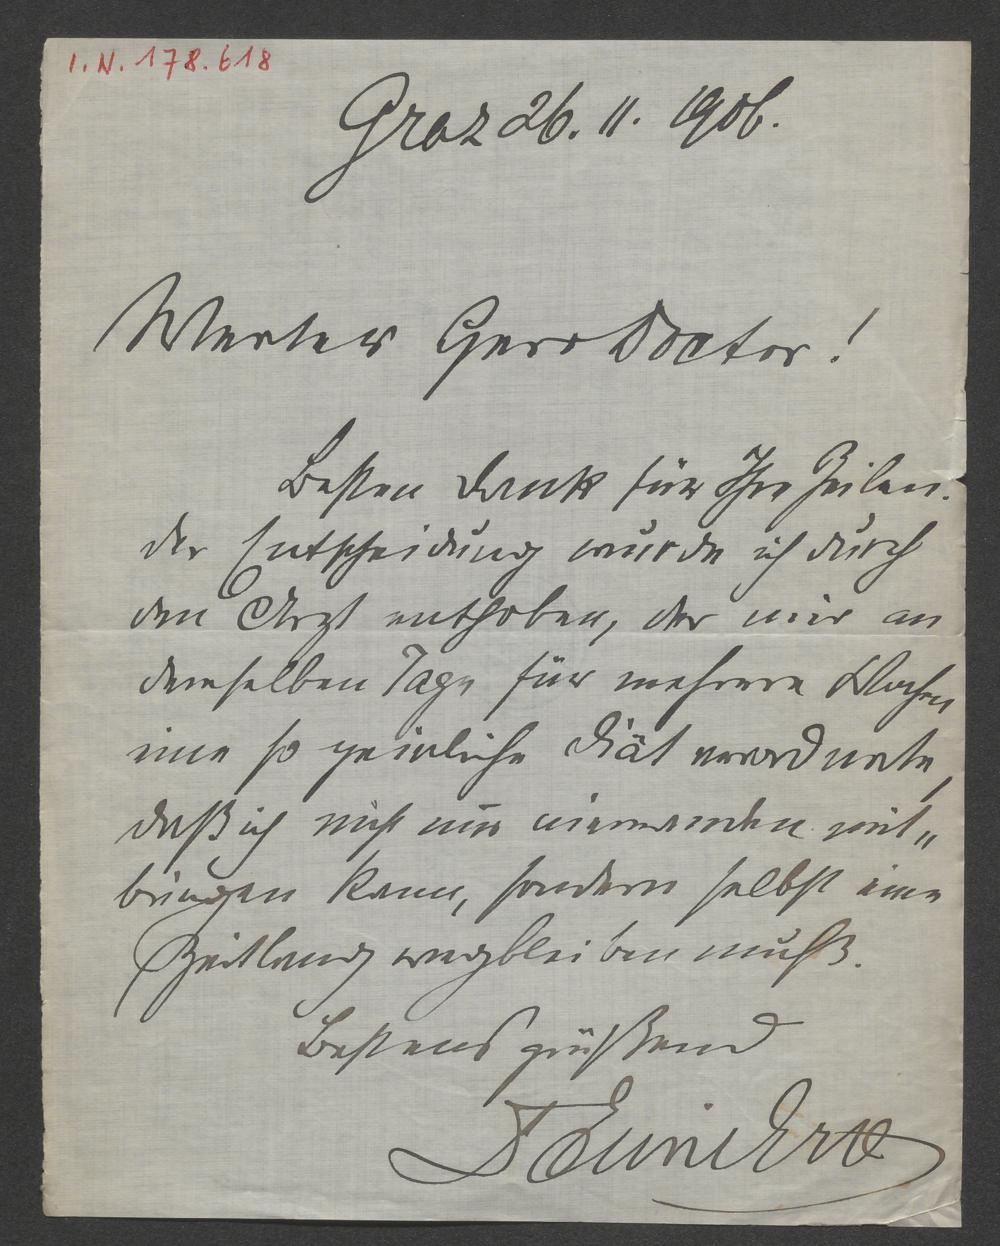 I.N. 178.618
Graz 26. 11. 1906.
Werter Herr Doctor!
Besten Dank für Ihre Zeilen.
Der Entscheidung wurde ich durch
den Arzt enthoben, der mir an
demselben Tage für mehrere Wochen
eine so peinliche Diät verordnete,
daß ich nicht nur niemanden mit„
bringen kann, sondern selbst eine
Zeitlang wegbleiben muß.
Bestens grüßend